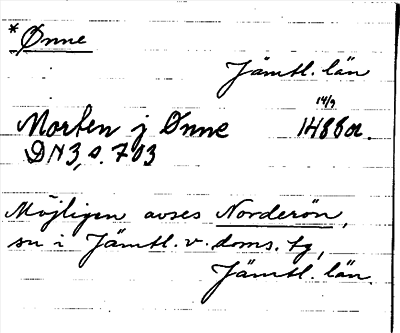 * Ønne
Jämtl. län
14/9
Morten j Ønne 1488 or.
DN3, s. 703
Möjligen avses Norderön,
sn i Jämtl. v. doms. tg,
Jämtl. län.